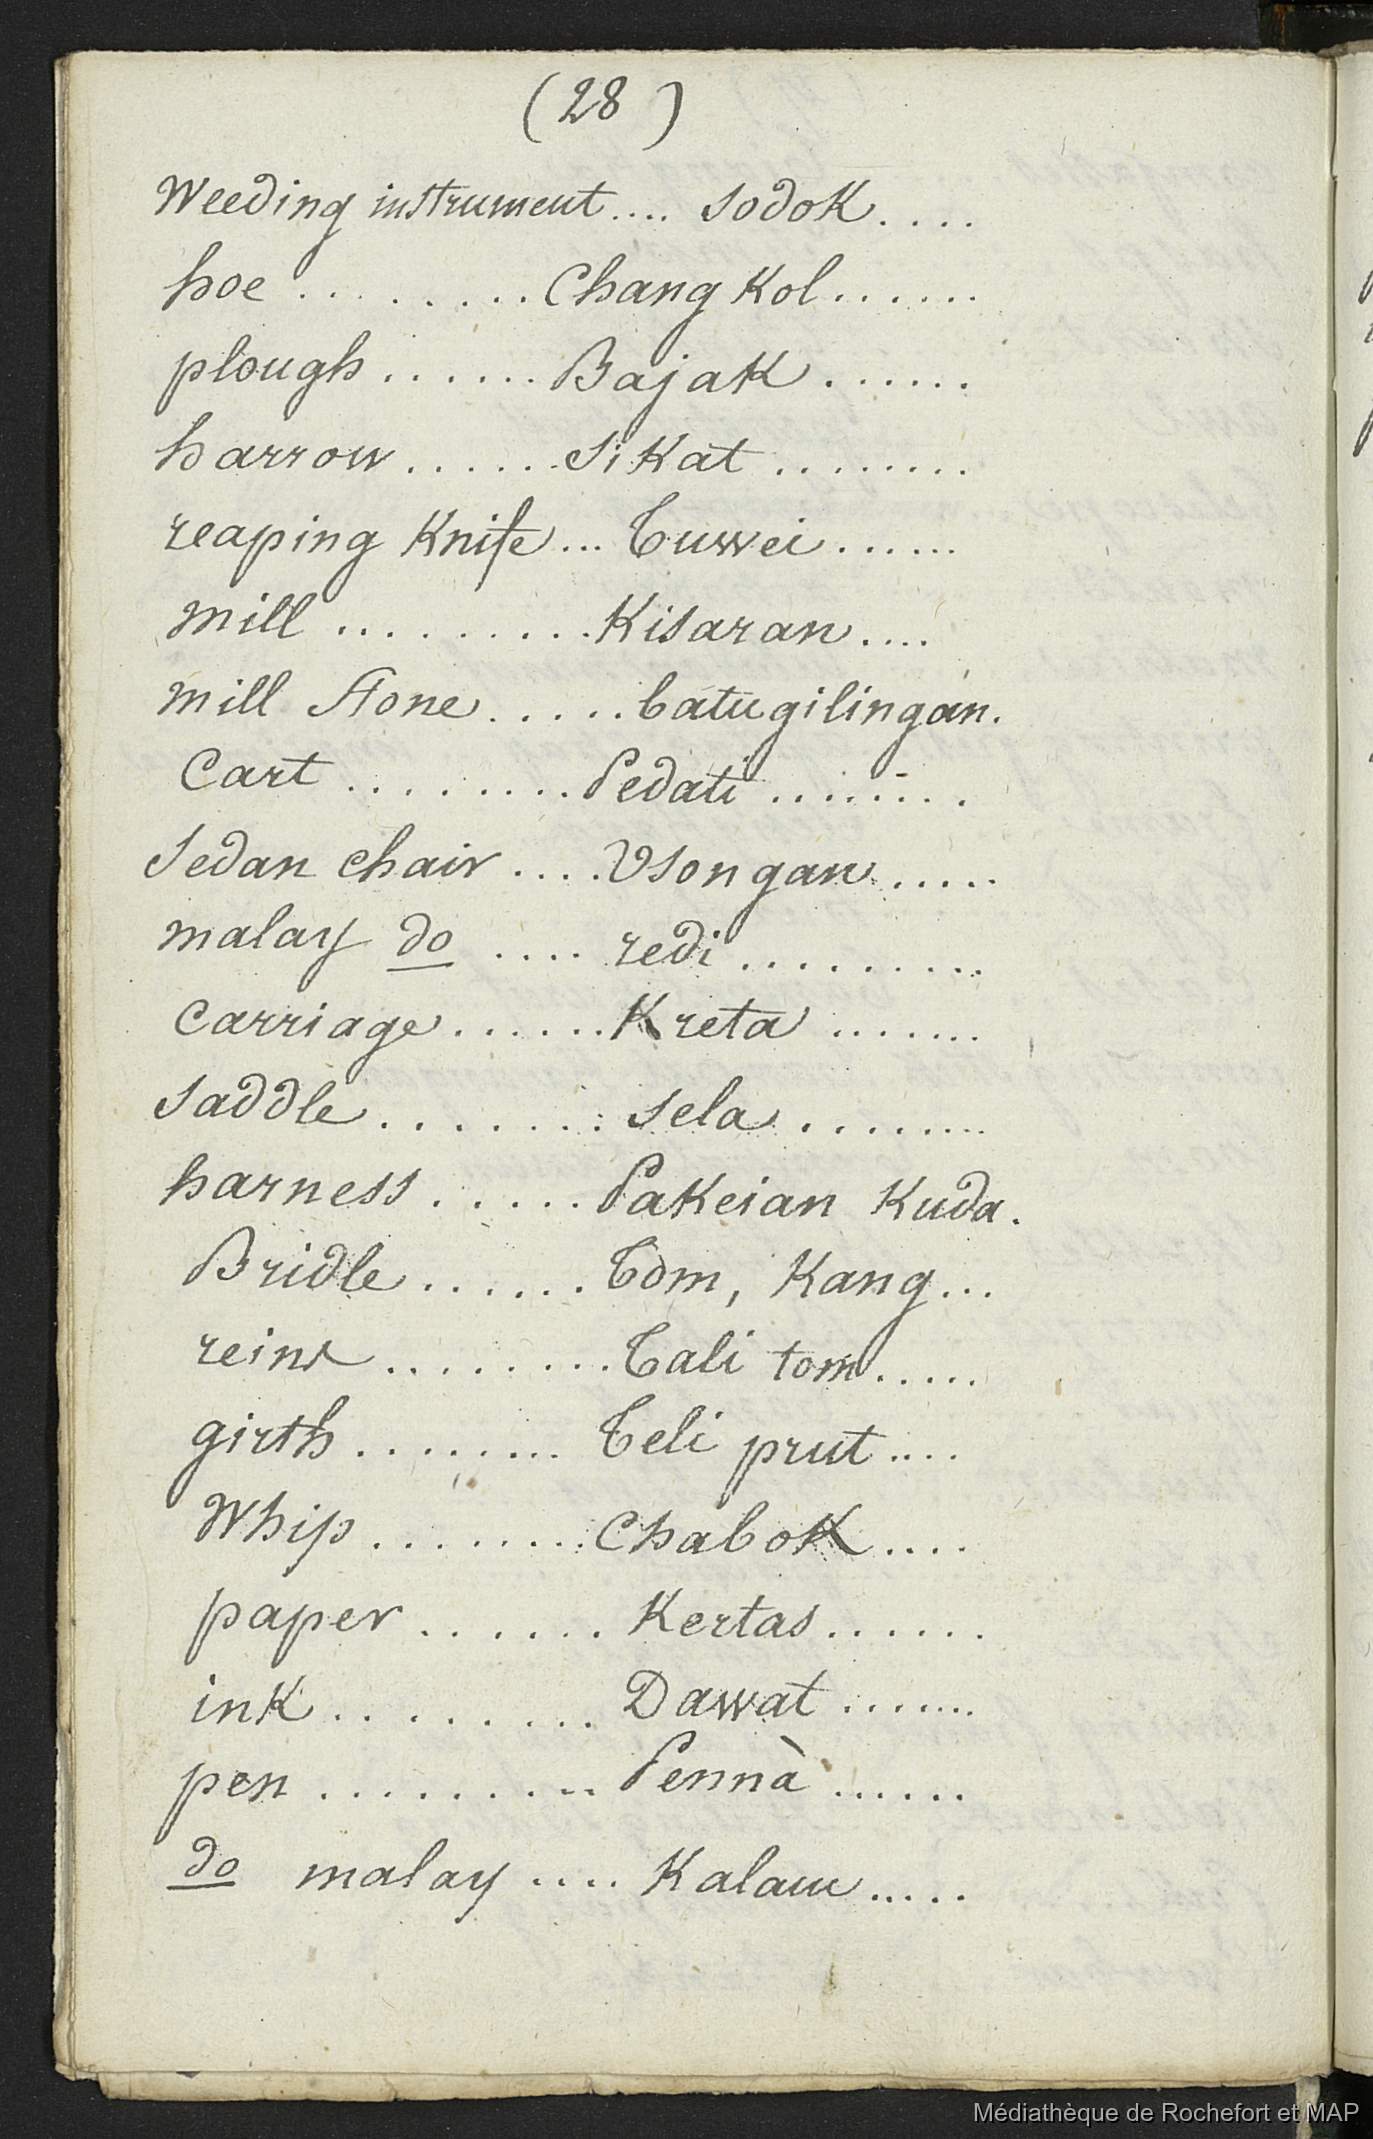 (28)
Weeding instrument.... sodok....
hoe ........ Chang Kol......
plough....... Bajak ......
harrow ...... Sikat ........
reaping Knife ... Tuwei ......
mill ......... Kisaran....
mill stone ..... batugilingan.
Cart ........ Pedati ........
Sedan chair .... Usongan.....
malay do .... redi ..........
Carriage ...... Kreta .......
Saddle ........ sela ........
harness ..... Pakeian Kuda.
Bridle ...... Tom, Kang...
reins ........ Tali tom.....
girth ........ Teli prut....
Whip ........ Chabok ....
paper ...... Kertas......
ink ......... Dawat ......
pen ......... Pennà ......
do malay .... Kalam.....
Médiathèque de Rochefort et MAP